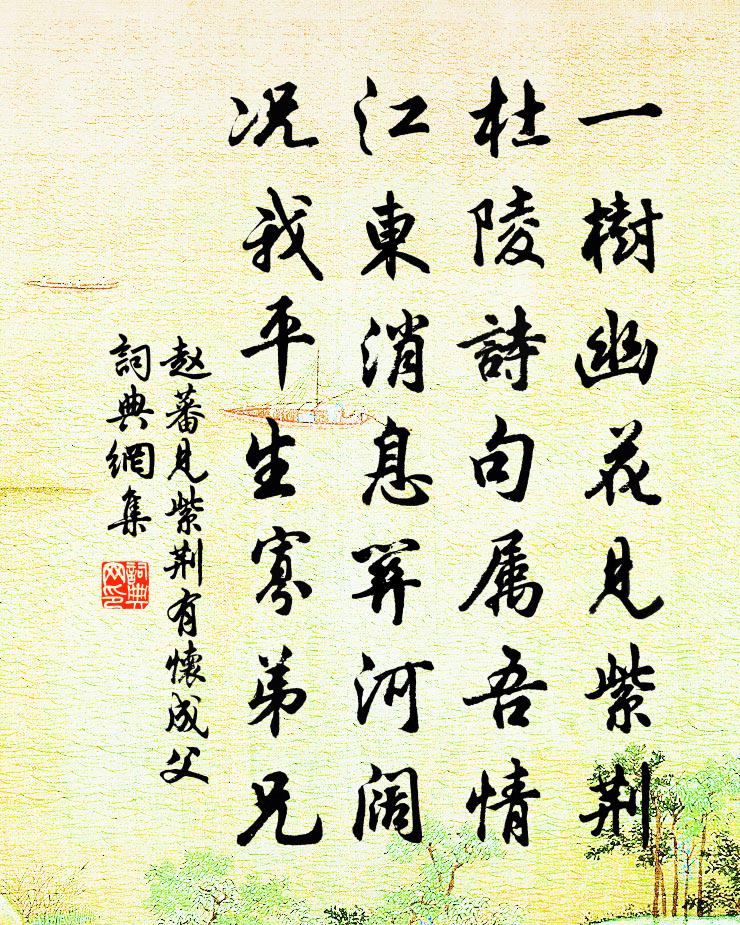 一樹幽花見紫荆
杜陵詩句属吾情
江東消息關河阔
况我平生寡弟兄
赵蕃見紫荆有懷成父
詞典網集
詞典网印